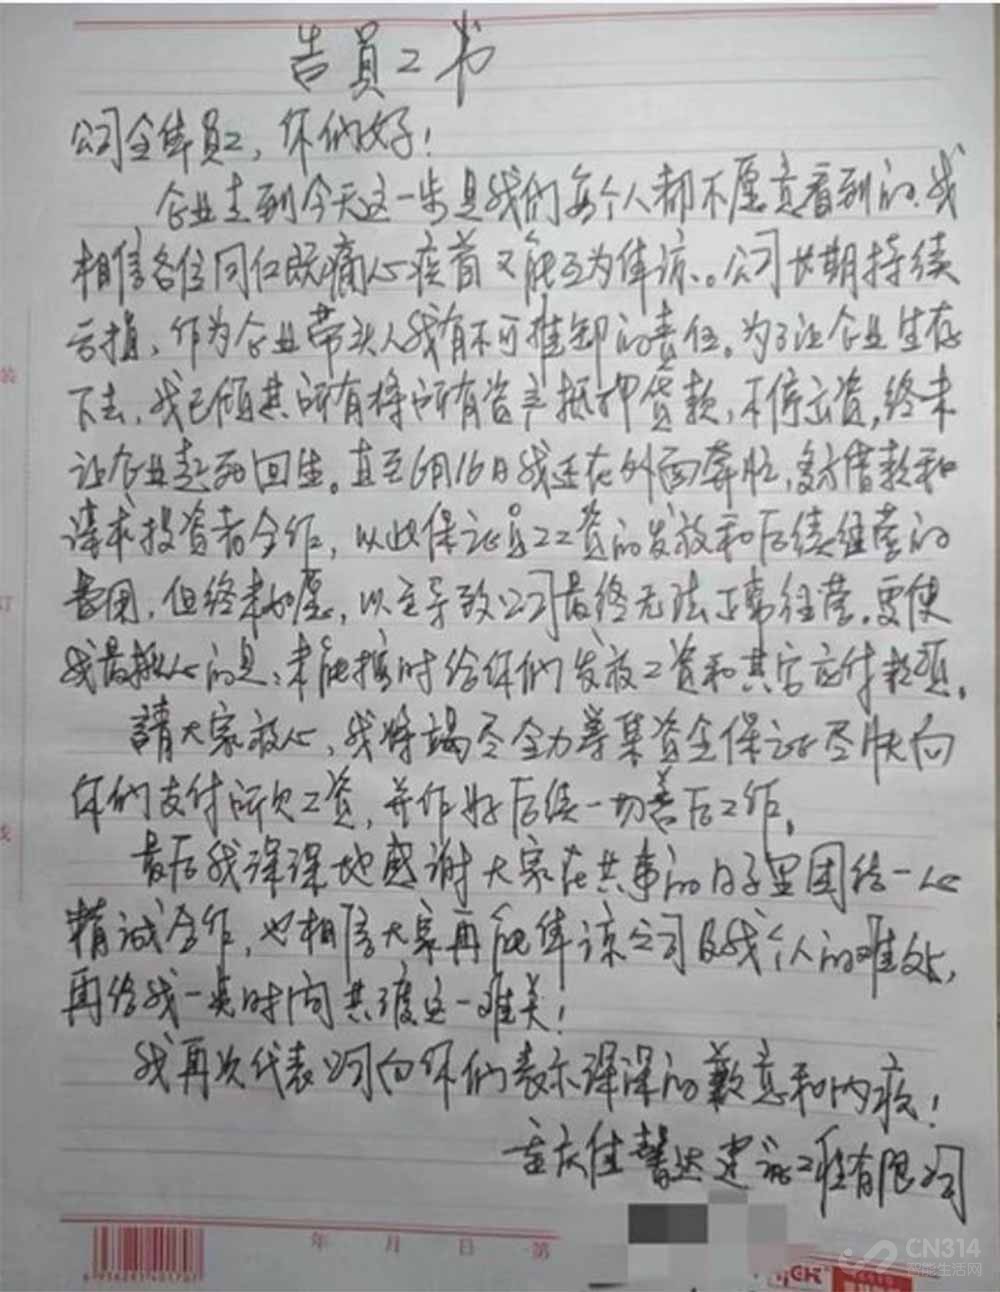 告员工书
公司全体员工，你们好！
企业走到今天这一步是我们每个人都不愿意看到的，我
相信各位同仁既痛心疾首又能互为体谅。公司长期持续
亏损，作为企业带头人我有不可推卸的责任。为了让企业生存
下去，我已倾其所有将所有资产抵押贷款，不停立资，终未
让企业起死回生。直至6月16日我还在外面奔忙，多方借款和
请求投资者合作，以此保证员工工资的发放和后续经营的
意图，但终未如愿，以至导致公司最终无法正常经营。更使
我最揪心的是：未能按时给你们发放工资和其它应付款项。
請大家放心，我将竭尽全力筹集资金保证尽快向
你们支付所欠工资，并作好后续一切善后工作。
最后我深深地感谢大家在共事的日子里团结一心
精诚合作，也相信大家再能体谅公司及我个人的难处，
再给我一点时间共渡这一难关！
我再次代表公司向你们表示深深的歉意和内疚！
重庆佳馨达建设工程有限公司
年 月 日 第
装
订
线
6956281401707
CN314
智能生活网